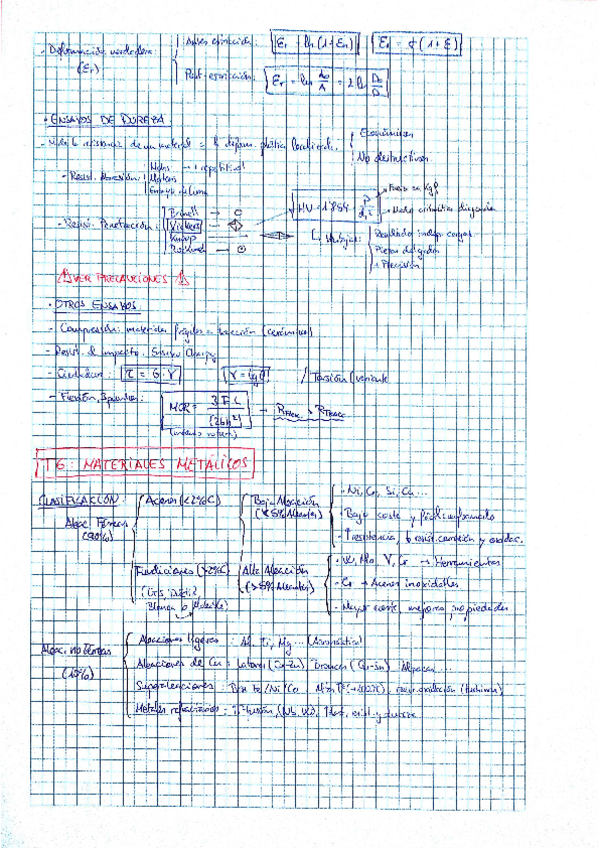 - Deformación verdadera: (Er)
Antes estricción: Er = ln(1+En) Er = σ(1+E)
Post-estricción: Er = ln A0/A = 2 ln D0/D
· ENSAYOS DE DUREZA
- Mide la resistencia de un material a la deform. plástica localizada.
Económicos
No destructivos
- Resist. Abrasión:
Mohs
- Resist. Penetración:
Brinell →
Vickers →
Knoop
Rockwell →
HV = 1'854 P/d1²
Fuerza en Kgf
Media aritmética diagonales
Ventajas:
Resultado indep. cargas
Piezas delgadas
+ Precisión
⚠ VER PRECAUCIONES ⚠
· OTROS ENSAYOS
- Compresión: materiales frágiles a tracción (cerámicos)
- Resist. al impacto: Ensayo Charpy
- Cizalladura: τ = G · γ γ = tg θ / Torsión
- Flexión, 3 puntos: MOR = 3FL/(2bh²) → RFLEX > RTRACC
(módulo rotura)
T6: MATERIALES METÁLICOS
CLASIFICACIÓN:
Aleac. Férreas (90%)
Aceros (<2%C)
Baja Aleación (<5% Aleantes)
- Ni, Cr, Si, Cu...
- Bajo coste y fácil conformado
- ↑ resistencia, ↓ resist. corrosión y oxidac.
Fundiciones (>2%C)
(Gris, Dúctil, Blanca → Maleable)
Alta Aleación (>5% Aleantes)
- W, Mo, V, Cr → Herramientas
- Cr → Aceros inoxidables
- Mayor coste, mejores propiedades
Aleac. no Férreas (10%)
Aleaciones ligeras: Al, Ti, Mg... (Aeronáutica)
Aleaciones de Cu: Latones (Cu-Zn) Bronces (Cu-Sn) Alpacas...
Superaleaciones: Base Fe/Ni/Co
Metales refractarios: